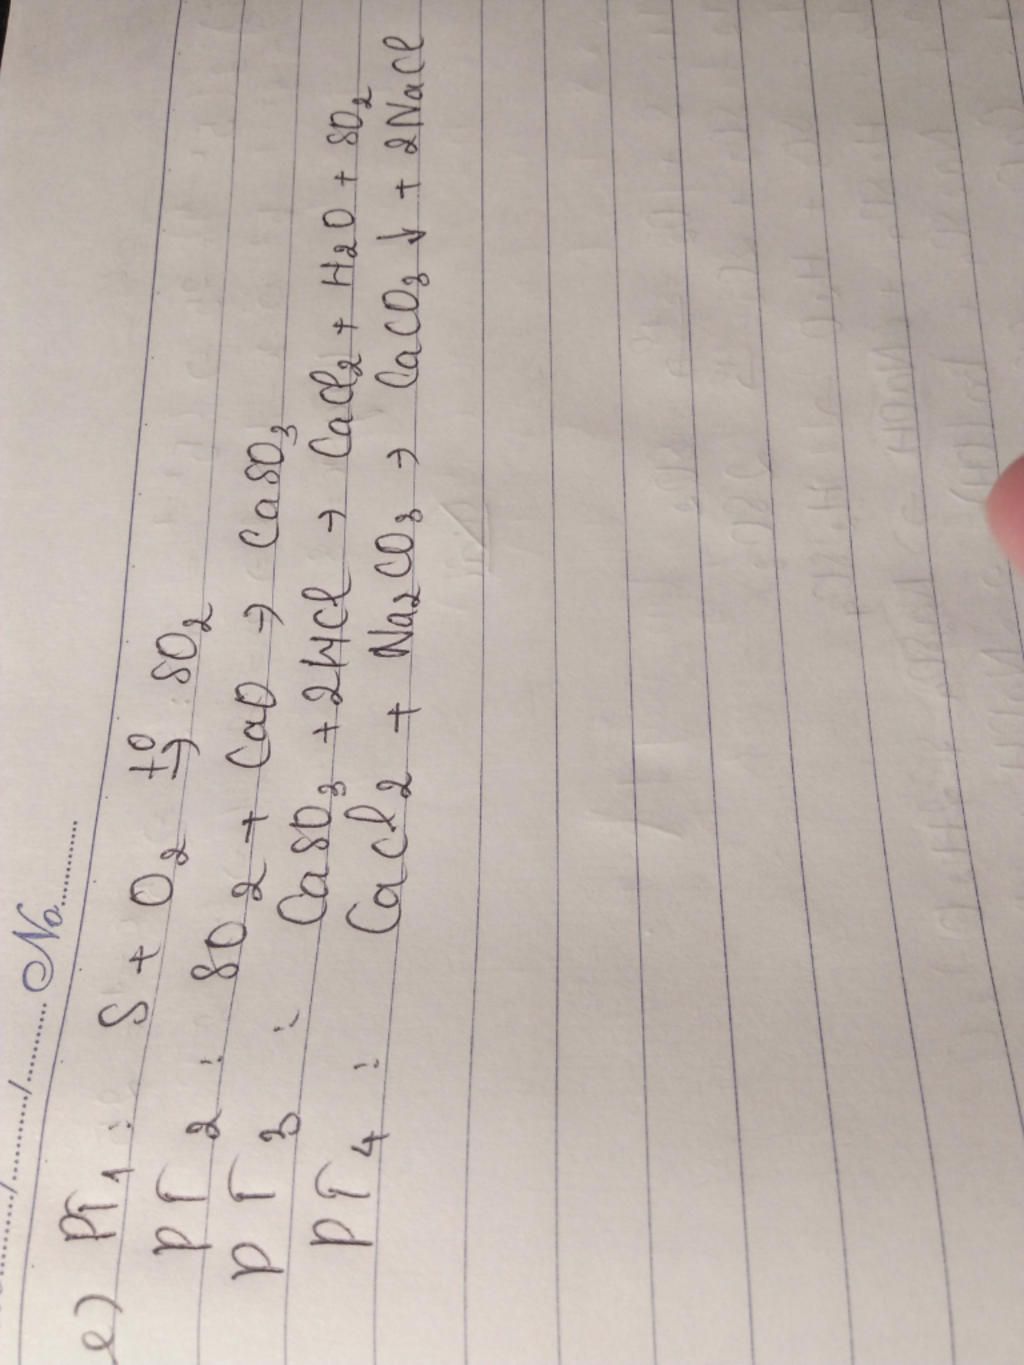 No
e) PT₁: S + O₂ t⁰→ SO₂
PT₂: SO₂ + CaO → CaSO₃
PT₃: CaSO₃ + 2HCl → CaCl₂ + H₂O + SO₂
PT₄: CaCl₂ + Na₂CO₃ → CaCO₃↓ + 2NaCl